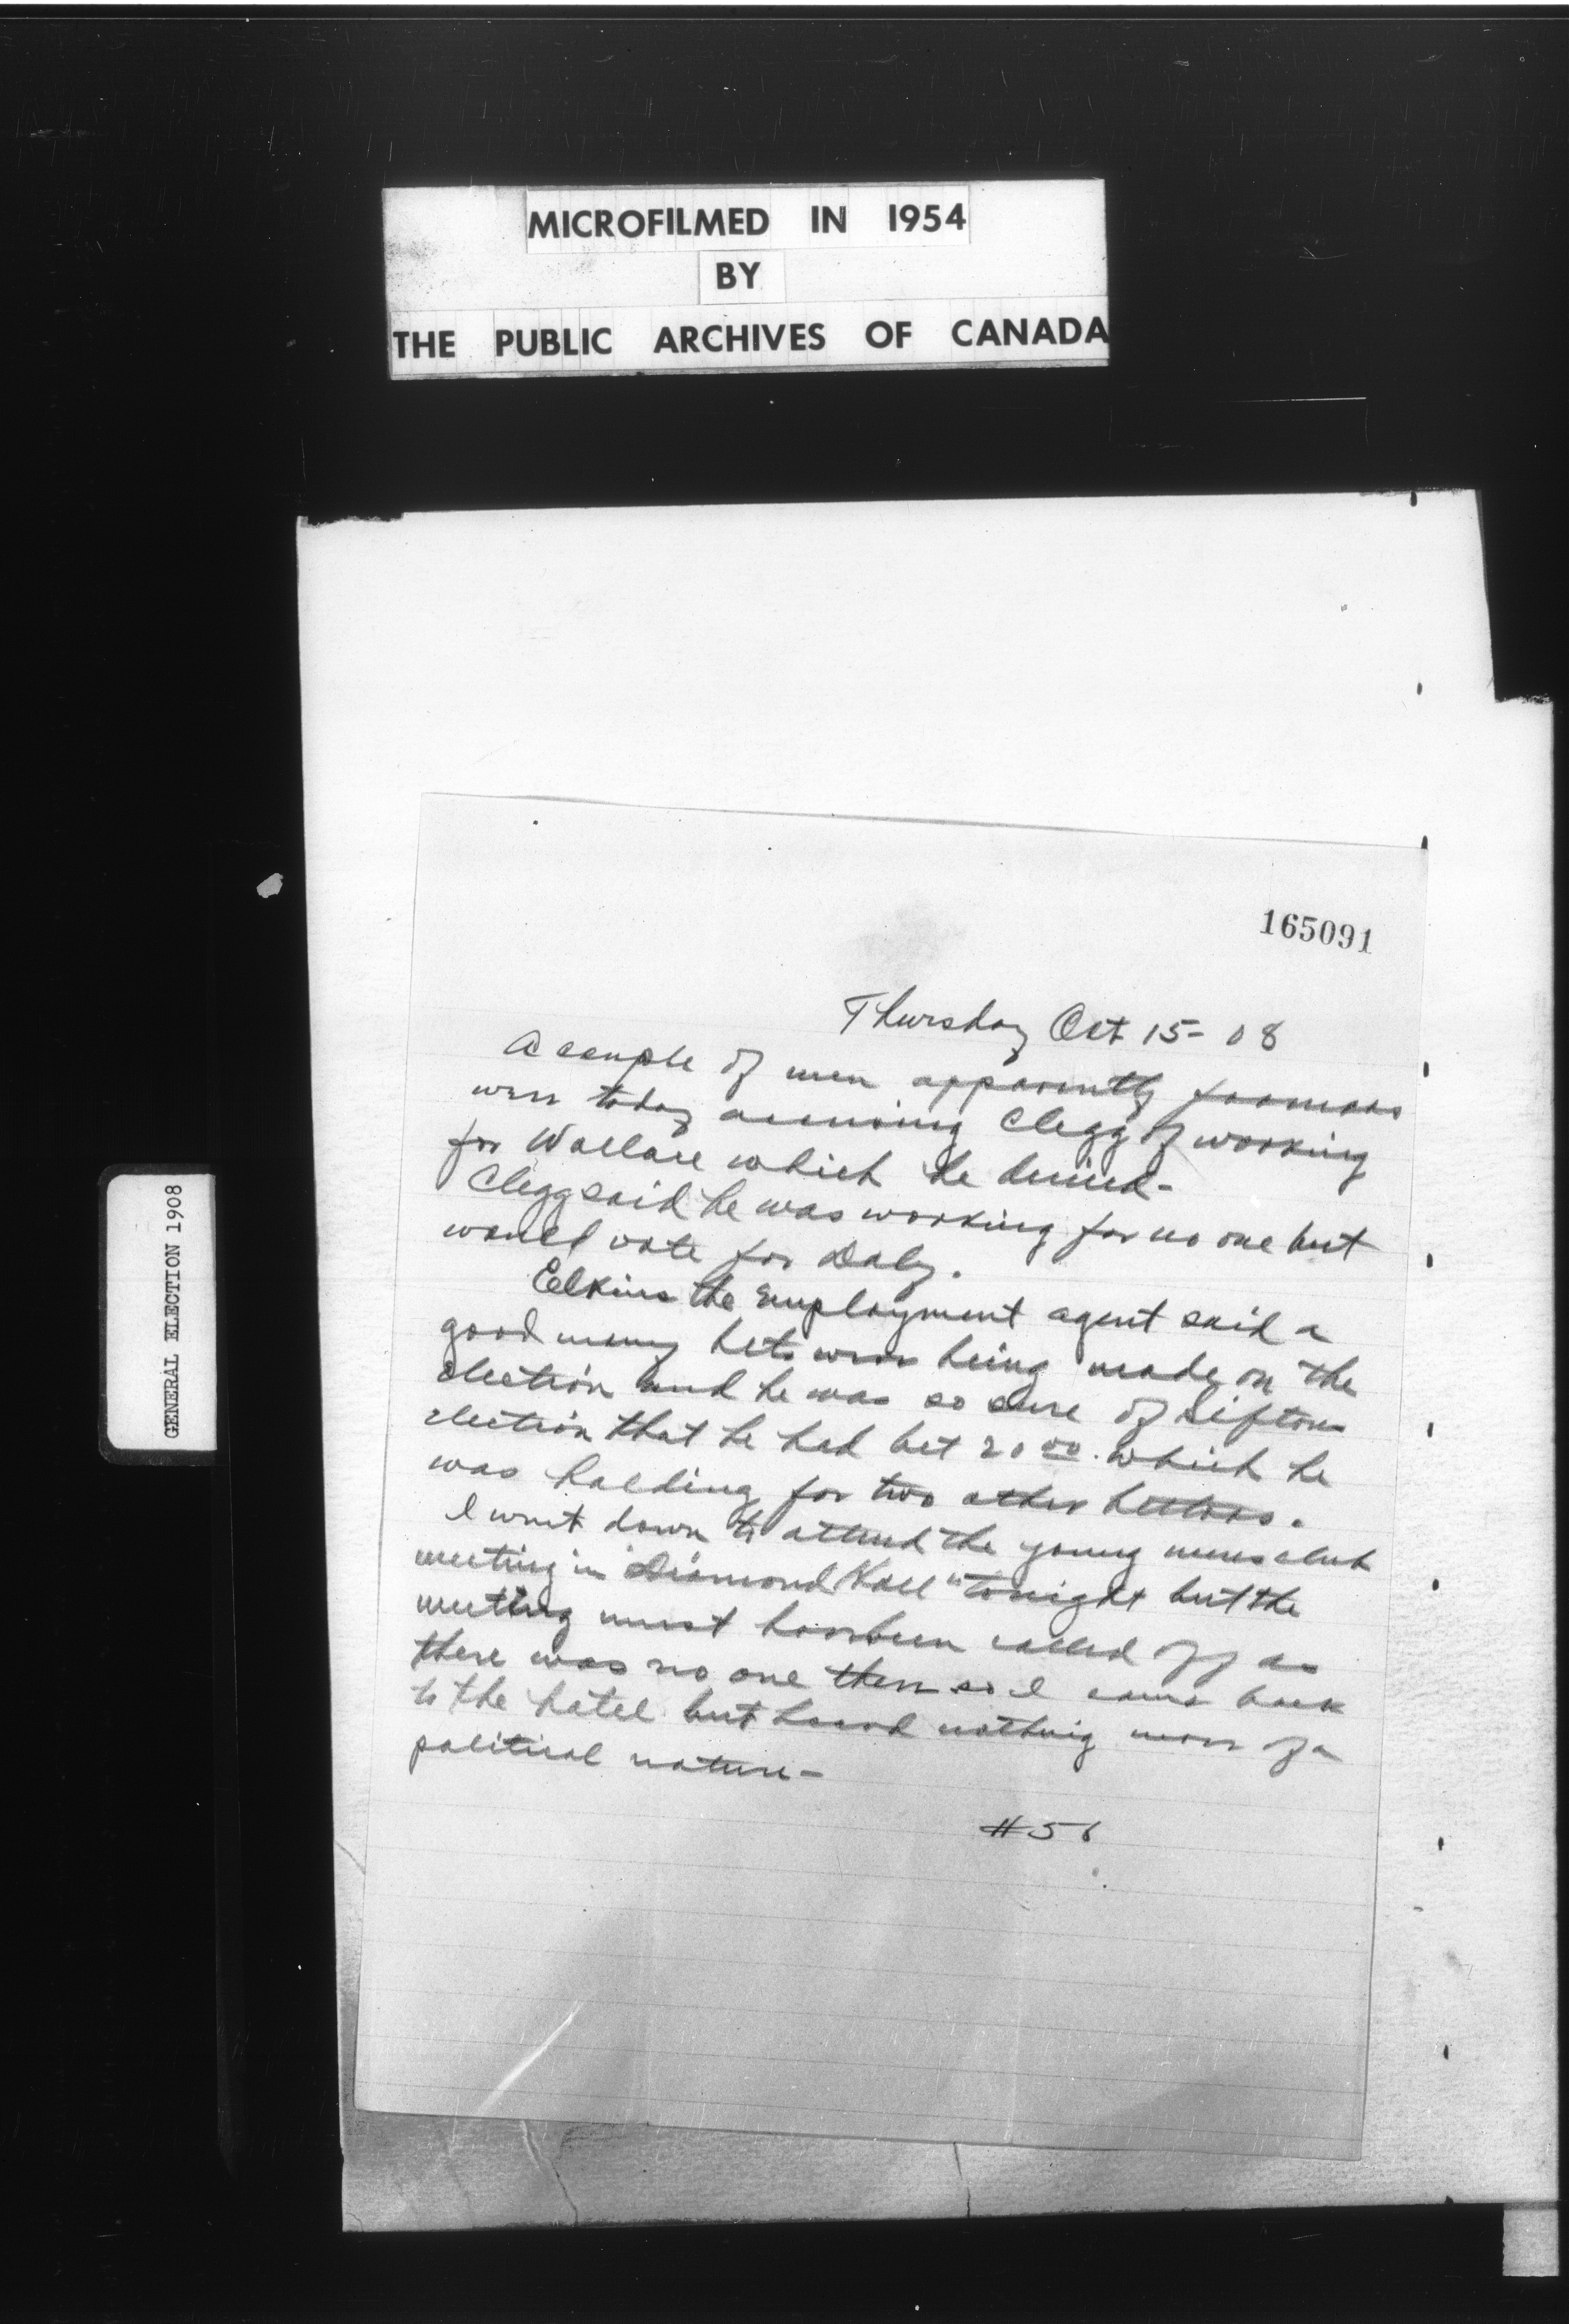 MICROFILMED IN 1954
BY
THE PUBLIC ARCHIVES OF CANADA
GENERAL ELECTION 1908
165091
Thursday Oct 15- 08
A couple of men apparently farmers
were today accusing Clegg of working
for Wallace which he denied-
Clegg said he was working for no one but
would vote for Daly.
Eelkins the Employment agent said a
good many bets were being made on the
election and he was so sure of Siftons
election that he had bet 20 00. which he
was holding for two other bettors.
I went down to attend the young mens club
meeting in "Diamond Hall" tonight but the
meeting must have been called off as
there was no one there so I came back
to the hotel but heard nothing more of a
political nature-
#56